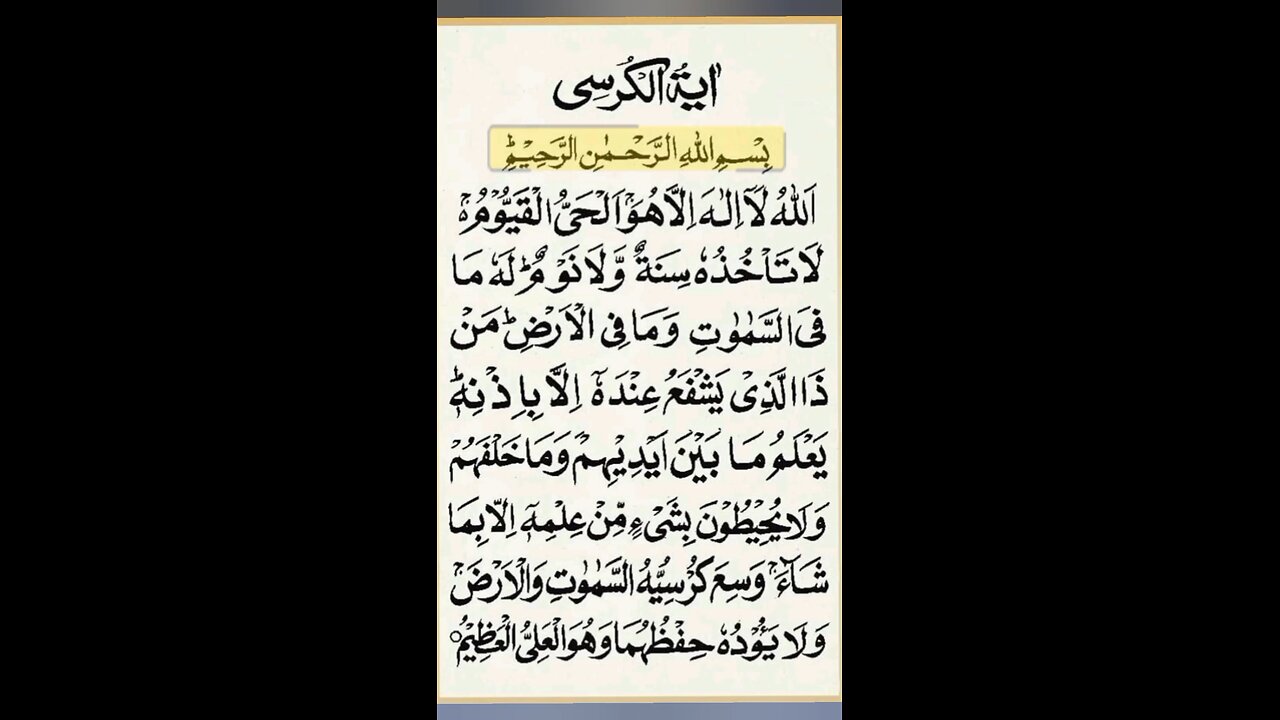 اٰیةُ الکُرسِی
بِسْمِ اللهِ الرَّحْمٰنِ الرَّحِیْمِؕ
اَللهُ لَاۤ اِلٰہَ اِلَّا ھُوَۚ اَلْحَیُّ الْقَیُّوْمُ۬ۚ
لَا تَاْخُذُہٗ سِنَةٌ وَّلَا نَوْمٌؕ لَہٗ مَا
فِی السَّمٰوٰتِ وَمَا فِی الْاَرْضِؕ مَنْ
ذَا الَّذِیْ یَشْفَعُ عِنْدَہٗۤ اِلَّا بِاِذْنِہٖؕ
یَعْلَمُ مَا بَیْنَ اَیْدِیْہِمْ وَمَا خَلْفَہُمْۚ
وَلَا یُحِیْطُوْنَ بِشَیْءٍ مِّنْ عِلْمِہٖۤ اِلَّا بِمَا
شَآءَۚ وَسِعَ کُرْسِیُّہُ السَّمٰوٰتِ وَالْاَرْضَۚ
وَلَا یَئُوْدُہٗ حِفْظُہُمَا وَھُوَ الْعَلِیُّ الْعَظِیْمُ○